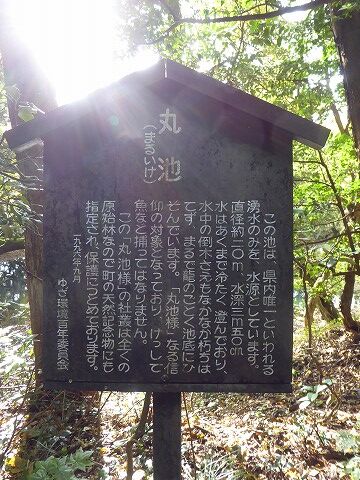 丸池
(まるいけ)
この池は、県内唯一といわれる
湧水のみを、水源としています。
直径約二〇m、水深三m五〇cm
水はあくまで冷たく澄んでおり、
水中の倒木さえもなかなか朽ちは
てず、まるで龍のごとく池底にひ
そんでいます。「丸池様」なる信
仰の対象となっており、けっして
魚など捕ってはなりません。
この「丸池様」の社叢は全くの
原始林なので町の天然記念物にも
指定され、保護につとめております。
一九九六年九月
ゆざ環境百年委員会